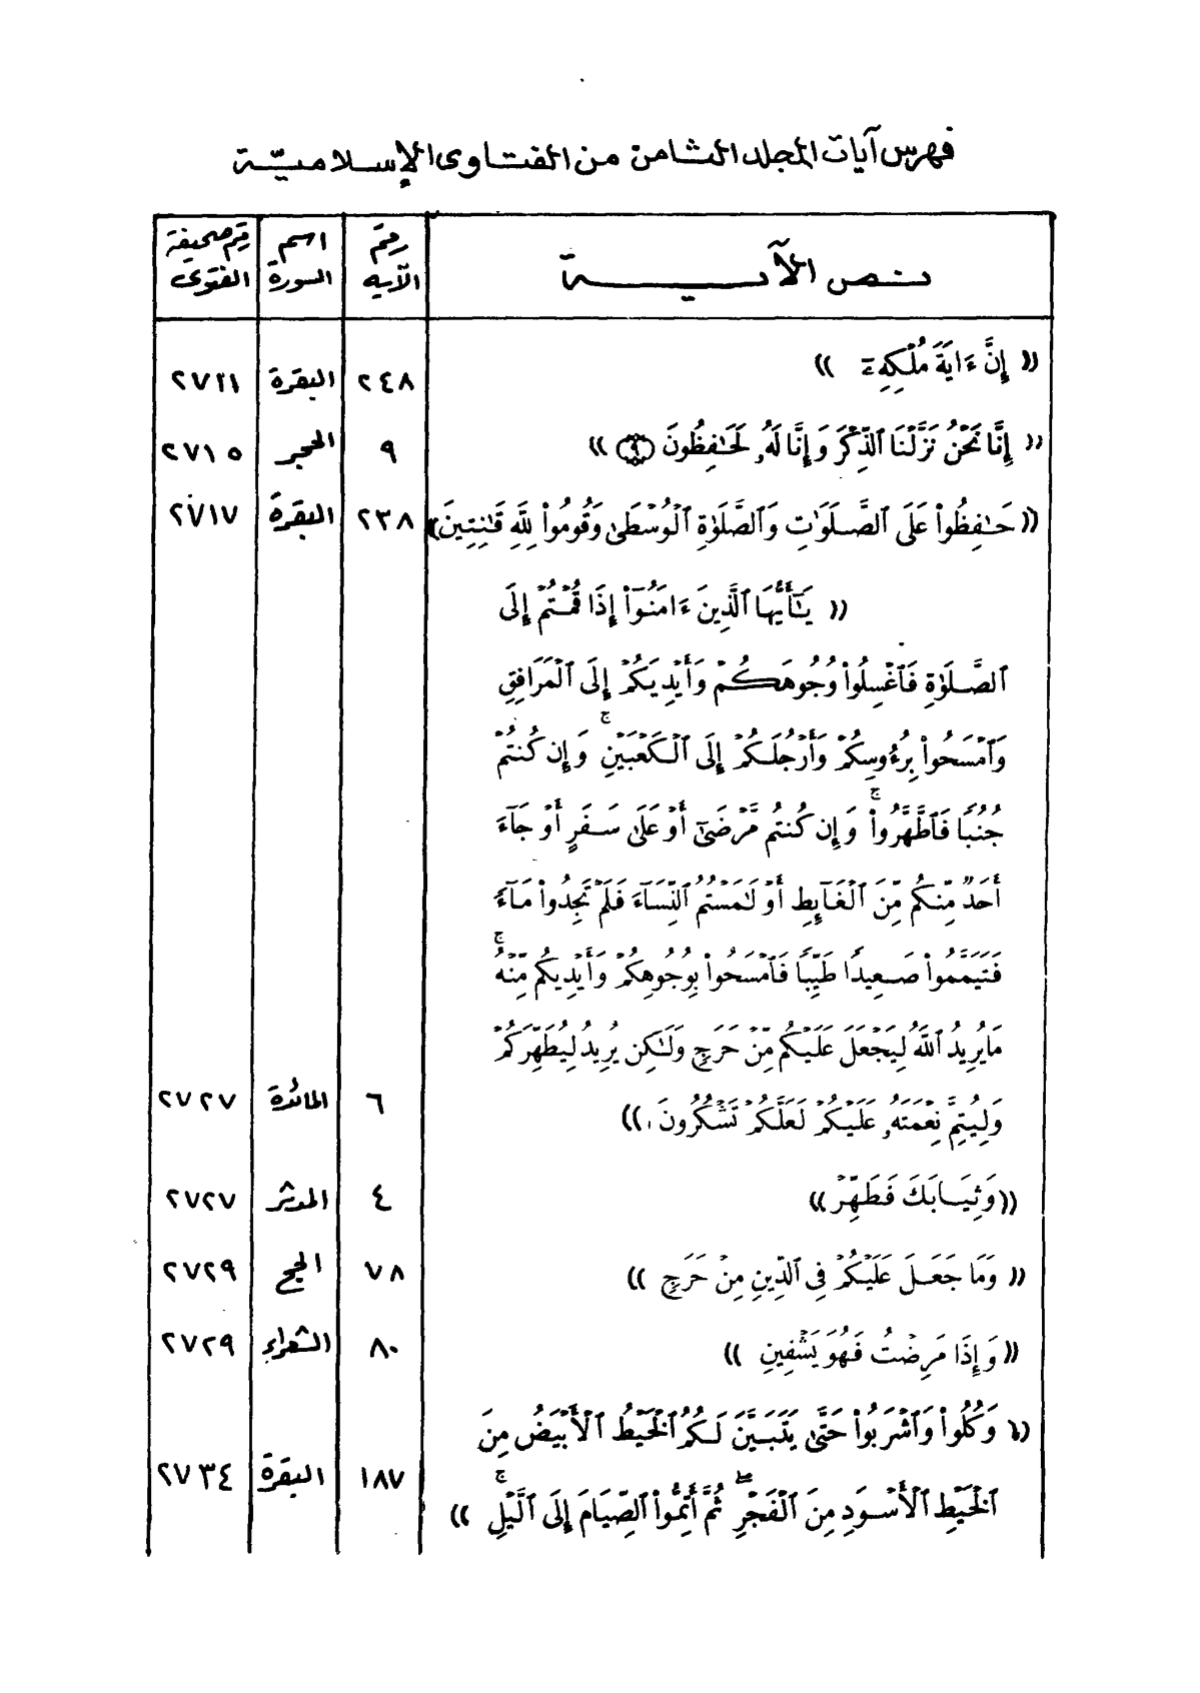 فهرس آيات المجلد الثامن من الفتاوى الإسلامية
نص الآية رقم الآية اسم السورة رقم صحيفة الفتوى
(( إِنَّ ءَايَةَ مُلْكِهِۦٓ )) ٢٤٨ البقرة ٢٧١١
(( إِنَّا نَحْنُ نَزَّلْنَا ٱلذِّكْرَ وَإِنَّا لَهُۥ لَحَٰفِظُونَ ۝٩ )) ٩ الحجر ٢٧١٥
(( حَٰفِظُوا۟ عَلَى ٱلصَّلَوَٰتِ وَٱلصَّلَوٰةِ ٱلْوُسْطَىٰ وَقُومُوا۟ لِلَّهِ قَٰنِتِينَ )) ٢٣٨ البقرة ٢٧١٧
(( يَٰٓأَيُّهَا ٱلَّذِينَ ءَامَنُوٓا۟ إِذَا قُمْتُمْ إِلَى
ٱلصَّلَوٰةِ فَٱغْسِلُوا۟ وُجُوهَكُمْ وَأَيْدِيَكُمْ إِلَى ٱلْمَرَافِقِ
وَٱمْسَحُوا۟ بِرُءُوسِكُمْ وَأَرْجُلَكُمْ إِلَى ٱلْكَعْبَيْنِ ۚ وَإِن كُنتُمْ
جُنُبًا فَٱطَّهَّرُوا۟ ۚ وَإِن كُنتُم مَّرْضَىٰٓ أَوْ عَلَىٰ سَفَرٍ أَوْ جَآءَ
أَحَدٌ مِّنكُم مِّنَ ٱلْغَآئِطِ أَوْ لَٰمَسْتُمُ ٱلنِّسَآءَ فَلَمْ تَجِدُوا۟ مَآءً
فَتَيَمَّمُوا۟ صَعِيدًا طَيِّبًا فَٱمْسَحُوا۟ بِوُجُوهِكُمْ وَأَيْدِيكُم مِّنْهُ ۚ
مَا يُرِيدُ ٱللَّهُ لِيَجْعَلَ عَلَيْكُم مِّنْ حَرَجٍ وَلَٰكِن يُرِيدُ لِيُطَهِّرَكُمْ
وَلِيُتِمَّ نِعْمَتَهُۥ عَلَيْكُمْ لَعَلَّكُمْ تَشْكُرُونَ )) ٦ المائدة ٢٧٢٧
(( وَثِيَابَكَ فَطَهِّرْ )) ٤ المدثر ٢٧٢٧
(( وَمَا جَعَلَ عَلَيْكُمْ فِى ٱلدِّينِ مِنْ حَرَجٍ )) ٧٨ الحج ٢٧٢٩
(( وَإِذَا مَرِضْتُ فَهُوَ يَشْفِينِ )) ٨٠ الشعراء ٢٧٢٩
(( وَكُلُوا۟ وَٱشْرَبُوا۟ حَتَّىٰ يَتَبَيَّنَ لَكُمُ ٱلْخَيْطُ ٱلْأَبْيَضُ مِنَ
ٱلْخَيْطِ ٱلْأَسْوَدِ مِنَ ٱلْفَجْرِ ۖ ثُمَّ أَتِمُّوا۟ ٱلصِّيَامَ إِلَى ٱلَّيْلِ ۚ )) ١٨٧ البقرة ٢٧٣٤